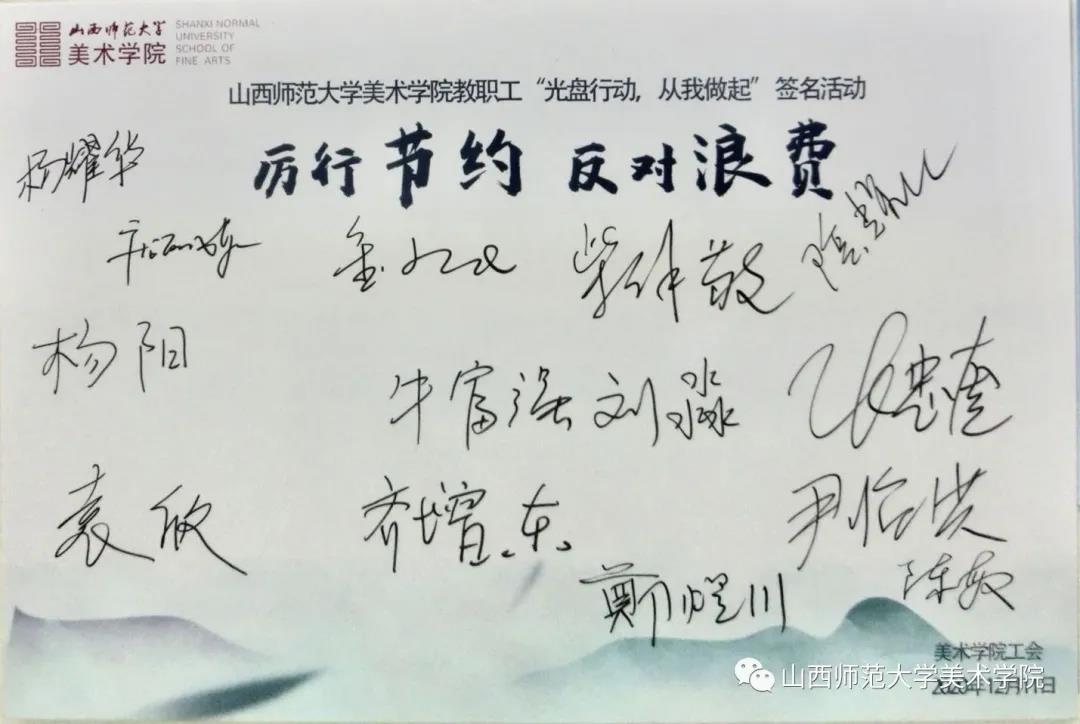 山西师范大学
美术学院
SHANXI NORMAL
UNIVERSITY
SCHOOL OF
FINE ARTS
山西师范大学美术学院教职工“光盘行动，从我做起”签名活动
厉行节约 反对浪费
杨耀华
杨阳
牛富强 刘淼
袁欣 齐增东 尹怡洪
郑煜川 陈敏
美术学院工会
山西师范大学美术学院
2020年12月11日